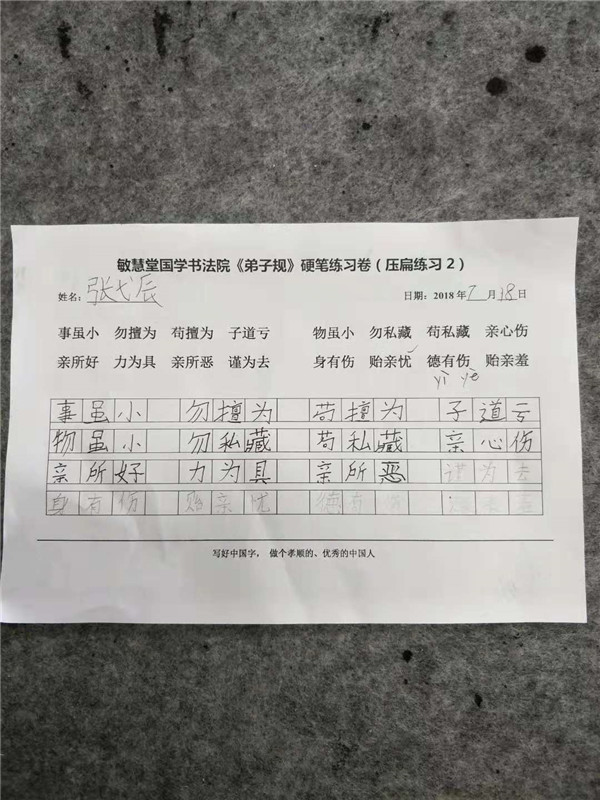 敏慧堂国学书法院《弟子规》硬笔练习卷（压扁练习2）
姓名：张弋辰 日期：2018年7月18日
事虽小 勿擅为 苟擅为 子道亏 物虽小 勿私藏 苟私藏 亲心伤
亲所好 力为具 亲所恶 谨为去 身有伤 贻亲忧 德有伤 贻亲羞
yì yè
事虽小 勿擅为 苟擅为 子道亏
物虽小 勿私藏 苟私藏 亲心伤
亲所好 力为具 亲所恶 谨为去
身有伤 贻亲忧 德有
写好中国字，做个孝顺的、优秀的中国人